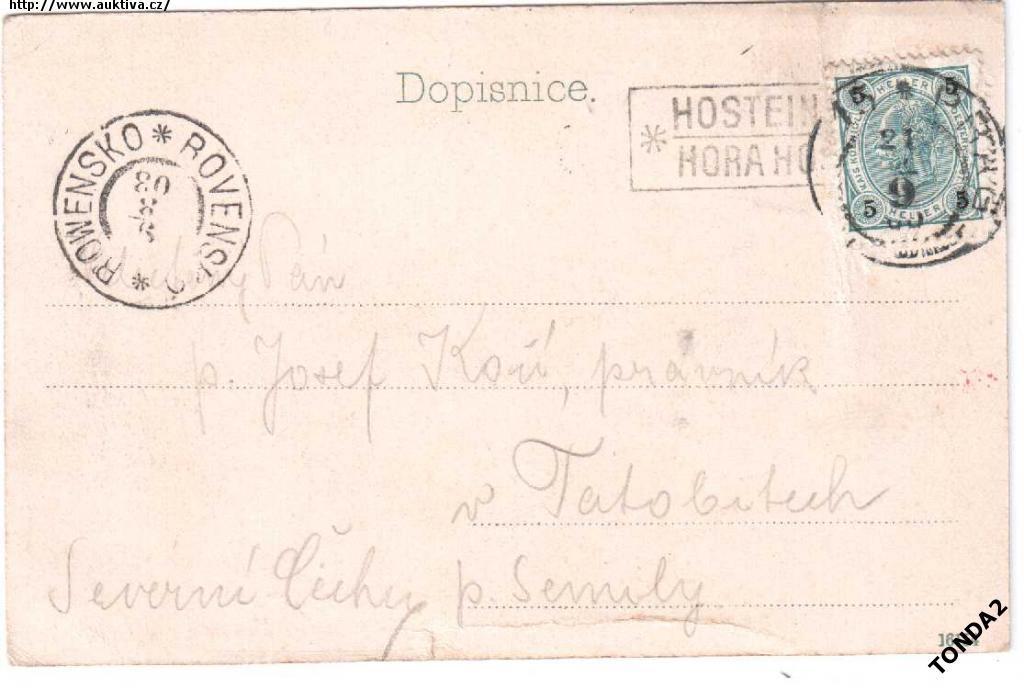 http://www.auktiva.cz/
Dopisnice.
* HOSTEIN
HORA HO
5 HELLER 5
21
9
5 HELLER 5
ROWENSKO * ROVENSKO *
Pán
p. Josef Kouř, právník
v Tatobitech
Severní Čechy p. Semily
TONDA2